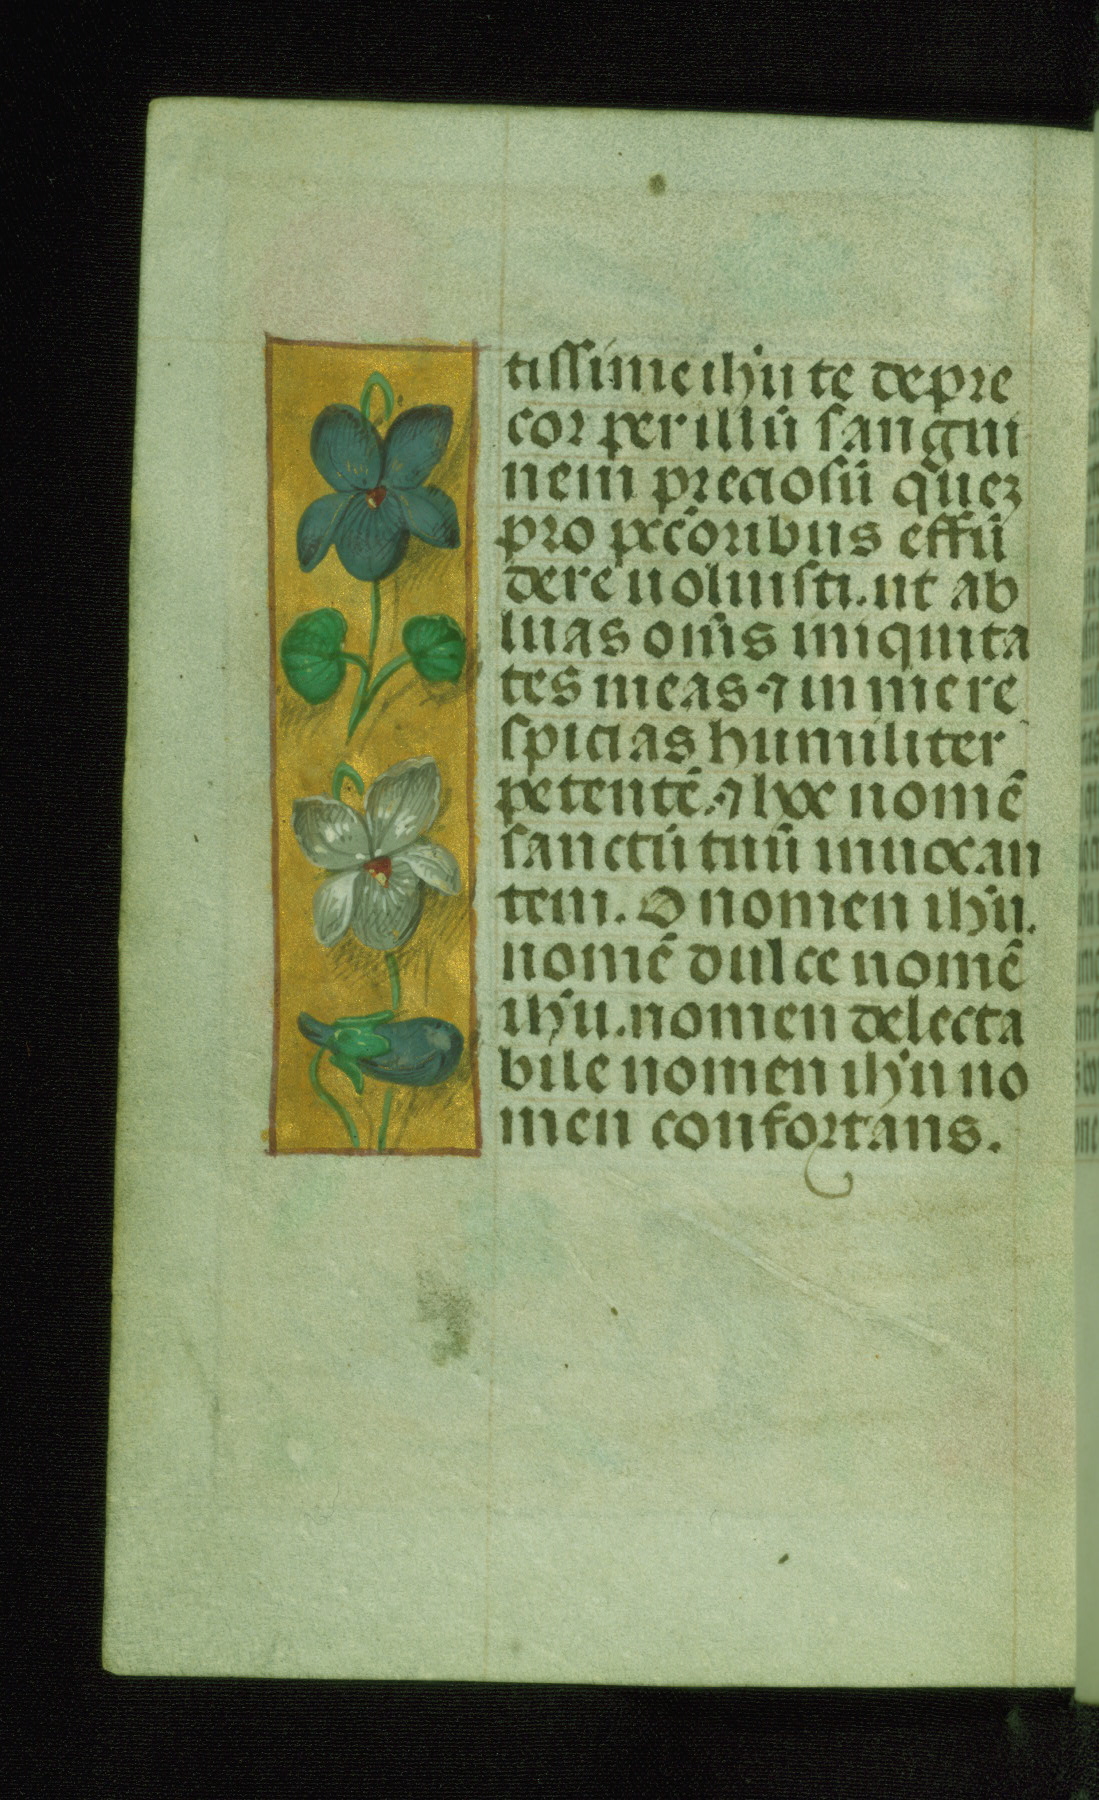 tissime ihũ te depre
cor per illũ sangui
nem preciosũ quez
pro pctoribus effũ
dere uoluisti. ut ab
luas oĩns iniquita
tes meas ⁊ in me re
spicias humiliter
petentẽ. ⁊ hoc nomẽ
sanctũ tuũ inuocan
tem. O nomen ihũ.
nomẽ dulce nomẽ
ihũ. nomen delecta
bile nomen ihũ no
men confortans.